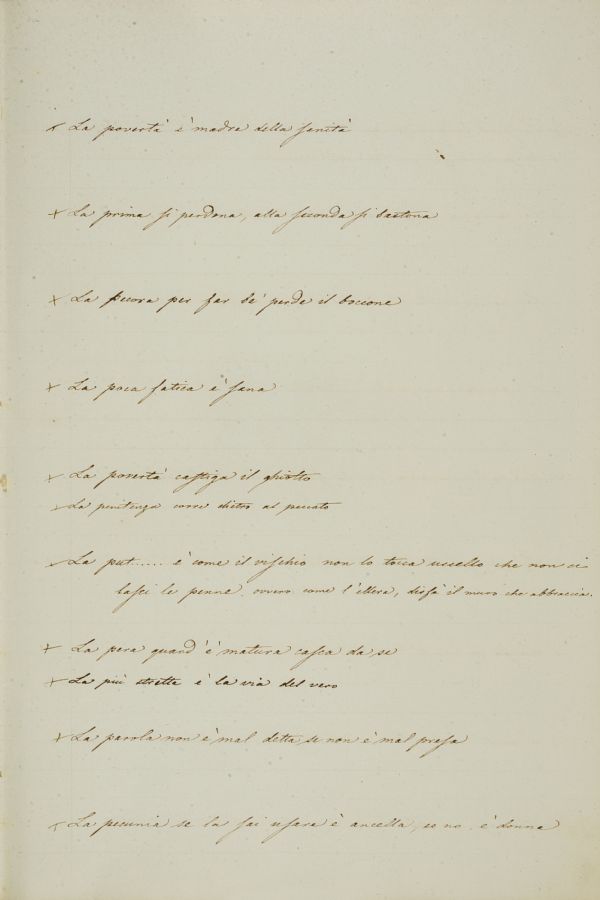 × La povertà è madre della sanità
× La prima si perdona, alla seconda si bastona
× La pecora per far bè perde il boccone
× La poca fatica è sana
× La povertà castiga il ghiotto
× La penitenza corre dietro al peccato
× La put..... è come il vischio non lo tocca uccello che non ci
lasci le penne. ovvero come l'ellera, disfà il muro che abbraccia.
× La pera quand'è matura casca da se
× La più stretta è la via del vero
× La parola non è mal detta se non è mal presa
× La pecunia se la sai usare è ancella, se no, è donna